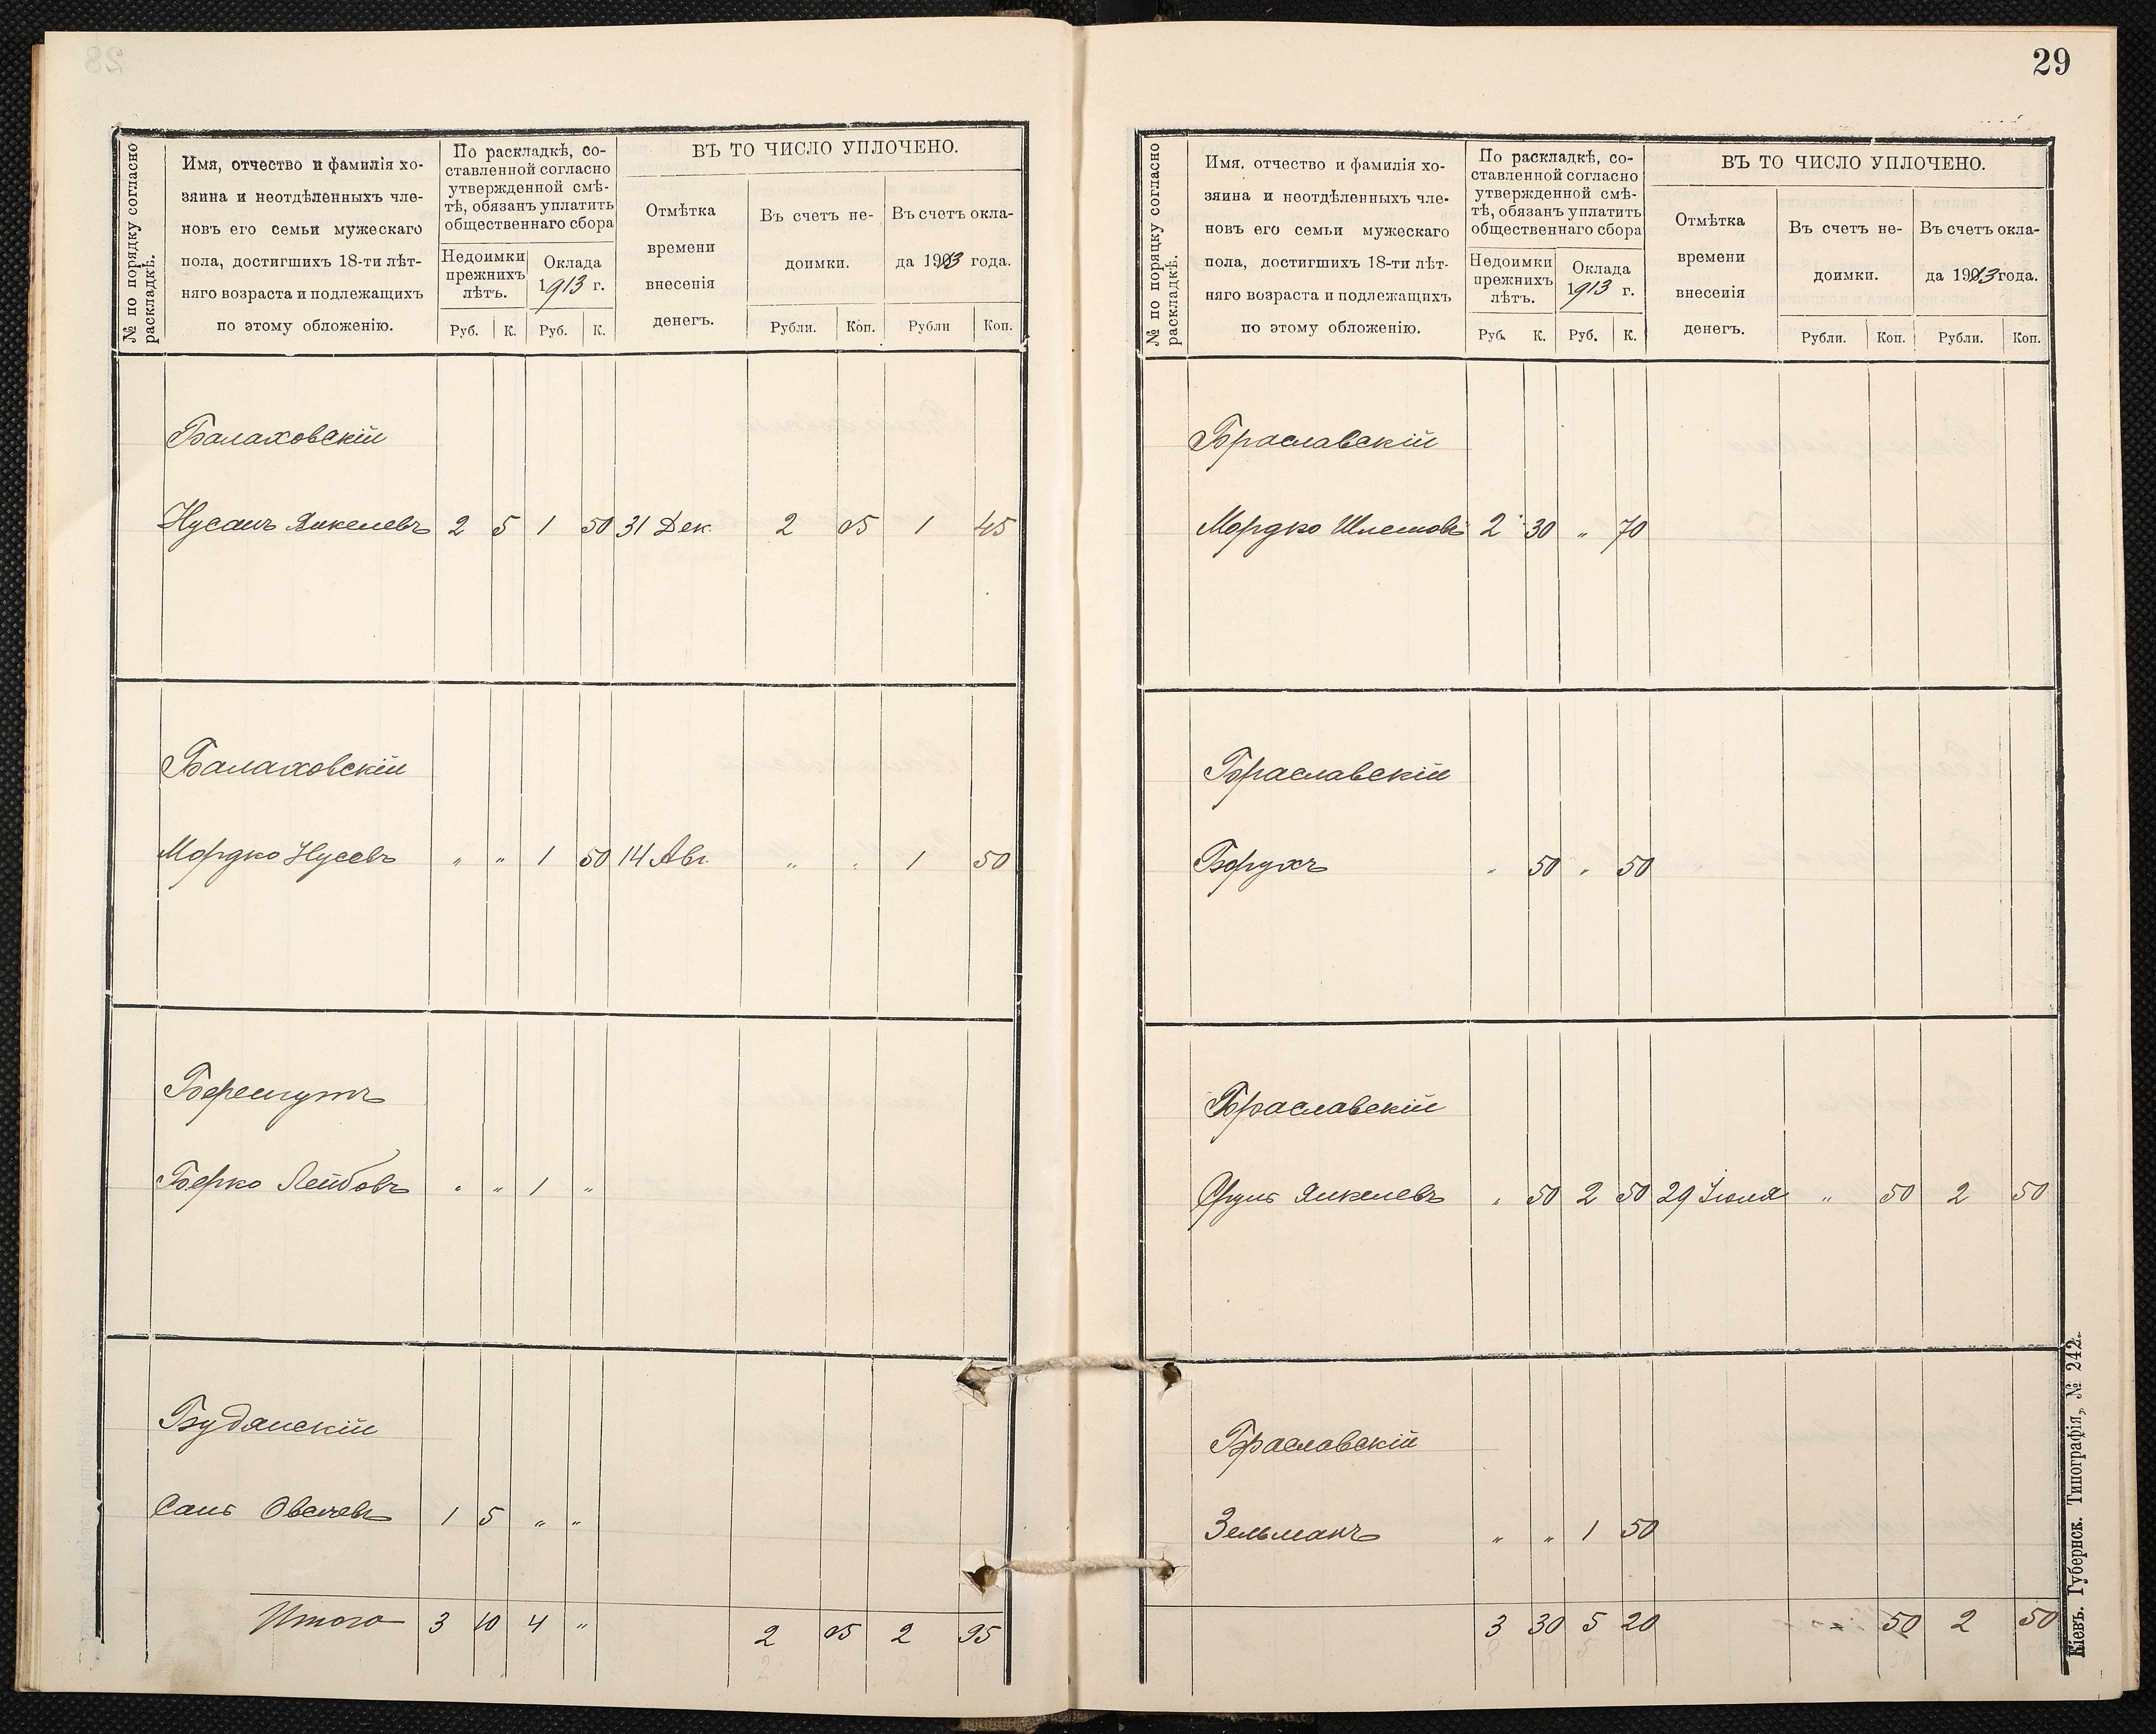 29
№ по порядку согласно раскладкѣ.
Имя, отчество и фамилія хо-
зяина и неотдѣленныхъ чле-
новъ его семьи мужескаго
пола, достигшихъ 18-ти лѣт-
няго возраста и подлежащихъ
по этому обложенію.
По раскладкѣ, со-
ставленной согласно
утвержденной смѣ-
тѣ, обязанъ уплатить
общественнаго сбора
Недоимки прежнихъ лѣтъ.
Оклада 1913 г.
Руб. К. Руб. К.
ВЪ ТО ЧИСЛО УПЛОЧЕНО.
Отмѣтка
времени
внесенія
денегъ.
Въ счетъ не-
доимки.
Въ счетъ окла-
да 1913 года.
Рубли. Коп. Рубли Коп.
Балаховскій
Нусанъ Янкелевъ 2 5 1 50 31 Дек. 2 05 1 45
Балаховскій
Мордко Нусевъ " " 1 50 14 Авг. " " 1 50
Беренгутъ
Берко Лейбовъ " " 1 "
Будянскій
Овсеевъ 1 5 " "
Итого 3 10 4 " 2 05 2 95
№ по порядку согласно раскладкѣ.
Имя, отчество и фамилія хо-
зяина и неотдѣленныхъ чле-
новъ его семьи мужескаго
пола, достигшихъ 18-ти лѣт-
няго возраста и подлежащихъ
по этому обложенію.
По раскладкѣ, со-
ставленной согласно
утвержденной смѣ-
тѣ, обязанъ уплатить
общественнаго сбора
Недоимки прежнихъ лѣтъ.
Оклада 1913 г.
Руб. К. Руб. К.
ВЪ ТО ЧИСЛО УПЛОЧЕНО.
Отмѣтка
времени
внесенія
денегъ.
Въ счетъ не-
доимки.
Въ счетъ окла-
да 1913 года.
Рубли. Коп. Рубли. Коп.
Браславскій
Мордко Шлемовъ 2 30 " 70
Браславскій
Борухъ " 50 " 50
Браславскій
Сруль Янкелевъ " 50 2 50 29 Іюня " 50 2 50
Браславскій
Зельманъ " " 1 50
3 30 5 20 50 2 50
Кіевъ. Губернск. Типографія, № 242.